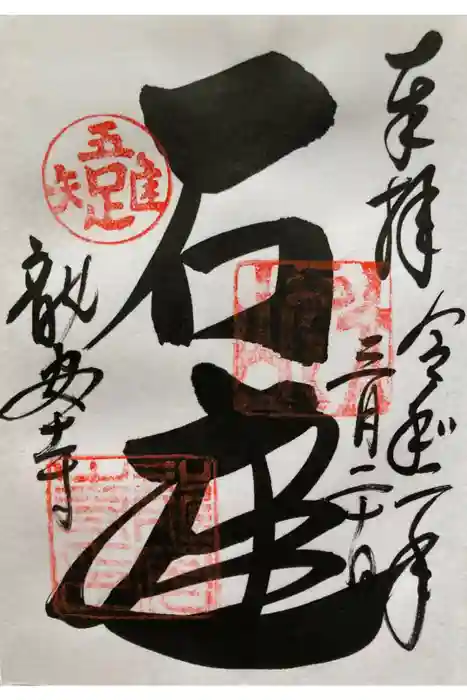 奉拝
令和二年
三月二十日
石庭
龍安寺
吾唯足知